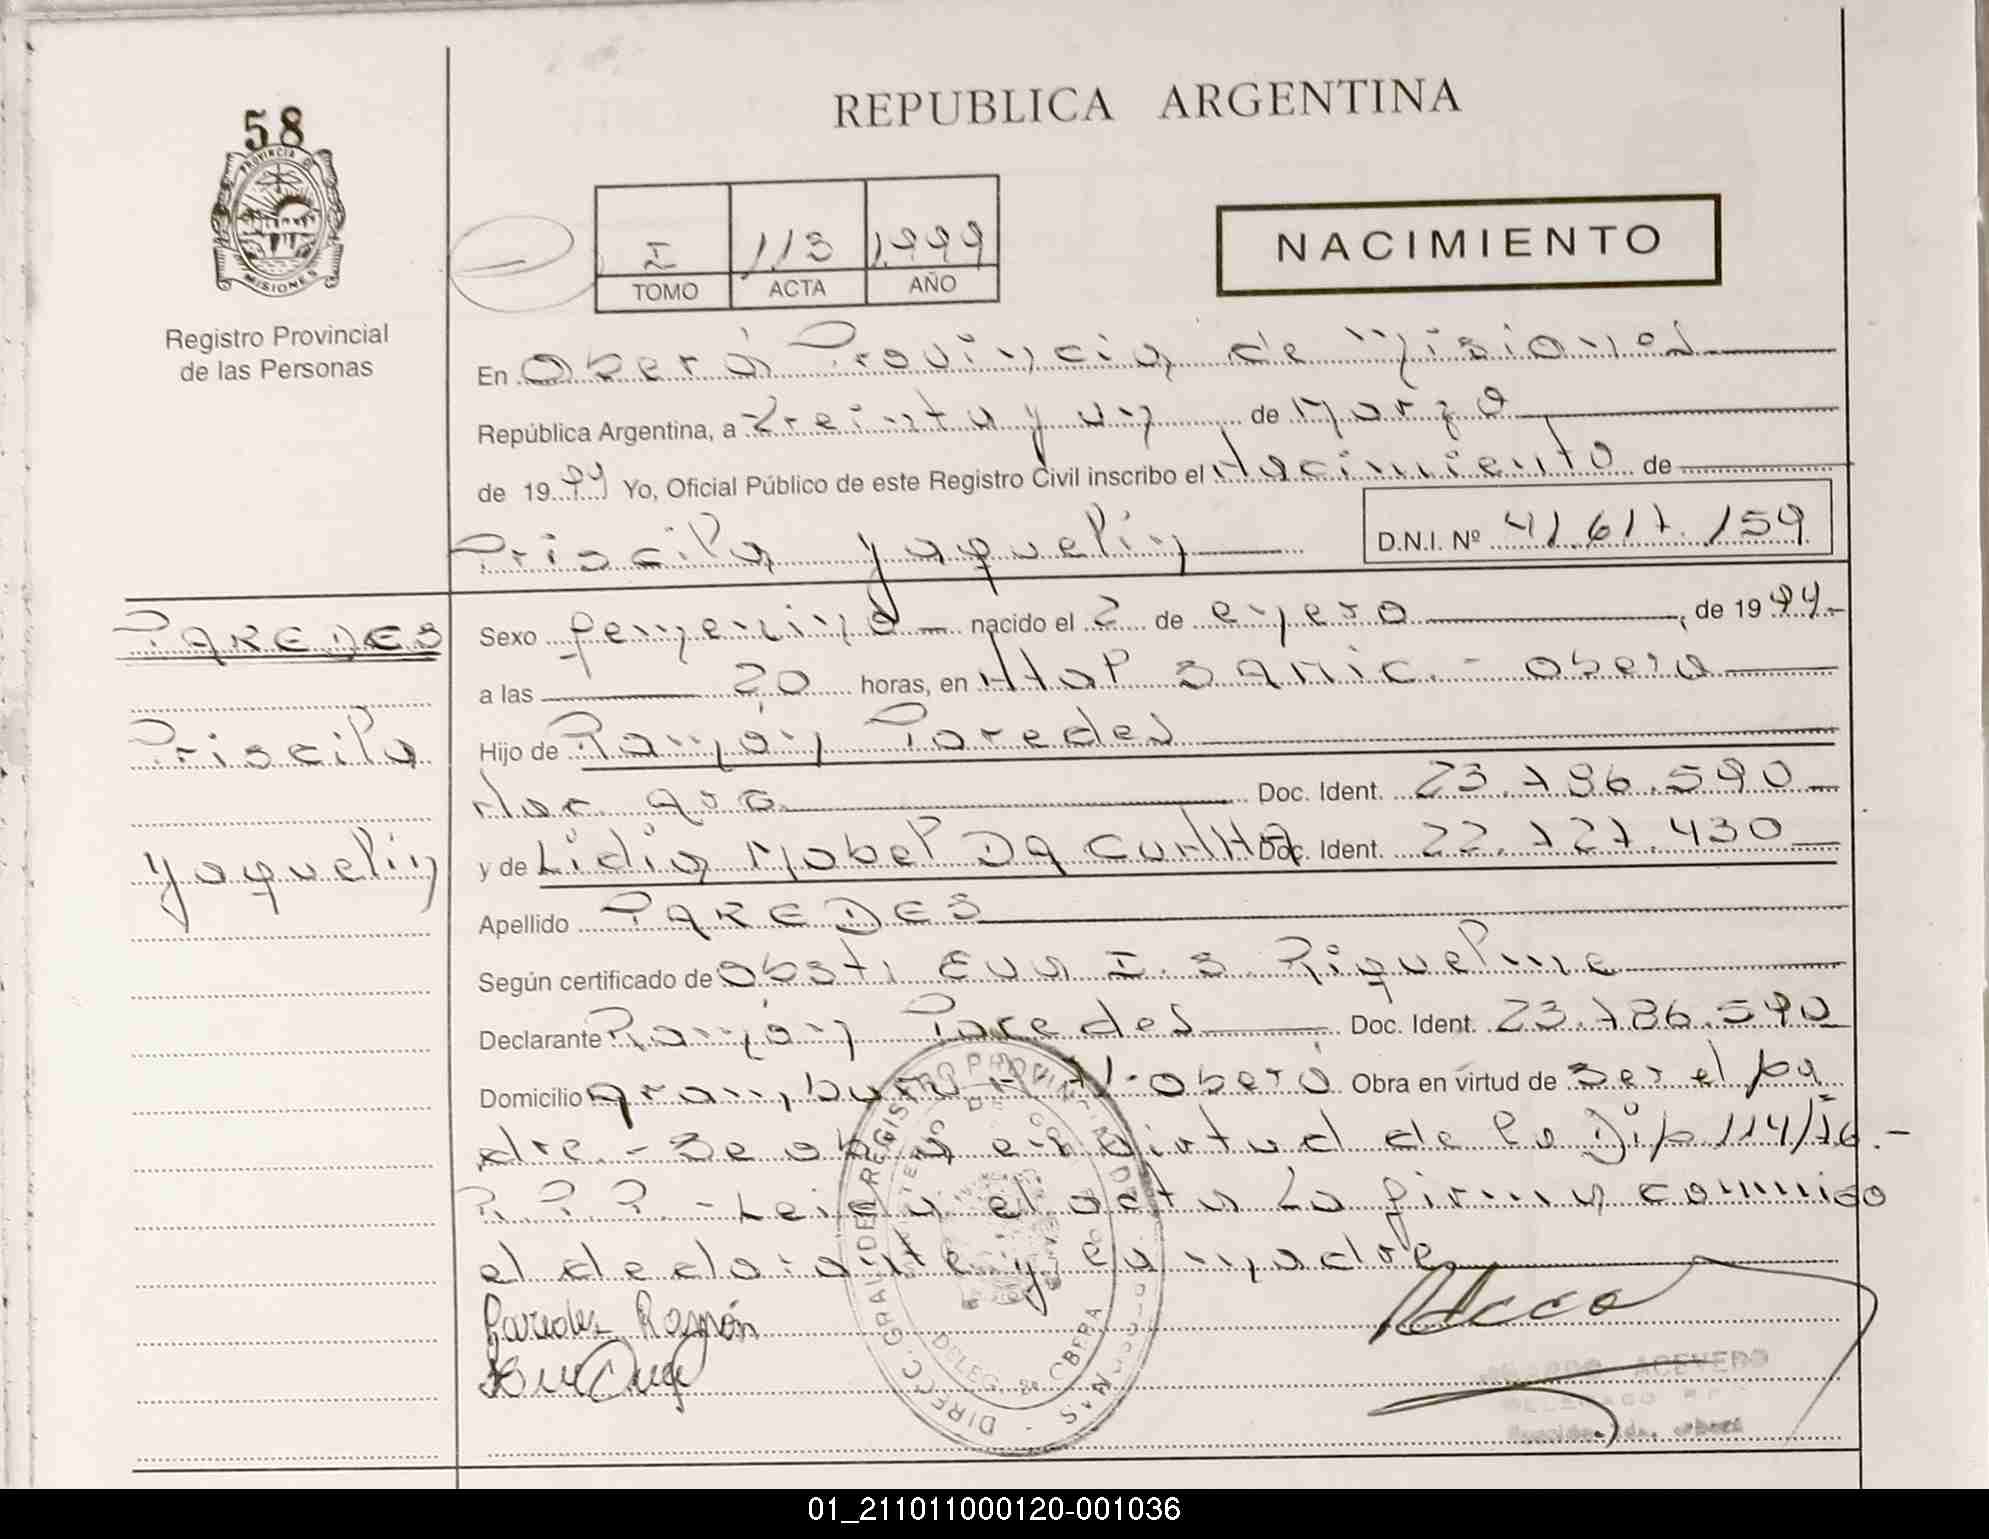 58
PROVINCIA D
MISIONES
Registro Provincial
de las Personas
REPUBLICA ARGENTINA
I 113 1.999
TOMO ACTA AÑO
NACIMIENTO
En Oberá Provincia de Misiones
República Argentina, a treinta y un de Marzo
de 1999 Yo, Oficial Público de este Registro Civil inscribo el Nacimiento de
Priscila Yaquelin D.N.I. Nº 41.617.159
PAREDES
Priscila
Yaquelin
Sexo femenino nacido el 2 de enero, de 1999.-
a las 20 horas, en Htal SAMIC.- Oberá
Hijo de Ramón Paredes
Nac. arg. Doc. Ident. 23.786.590
y de Lidia Mabel Da CunHa Doc. Ident. 22.727.430
Apellido PAREDES
Según certificado de Obst. Eva I. S Riquelme
Declarante Ramón Paredes Doc. Ident. 23.786.590
Domicilio Oberá Obra en virtud de ser el pa
dre.- Se obra en virtud de la Dip 114/76.-
P. P. P.- Leida el acta La firma conmigo
el declarante y la madre
Paredes Ramón
DIRECC. GRAL. DEL REGISTRO PROVINCIAL
DELEG. OBERA
ACEVEDO
01_211011000120-001036